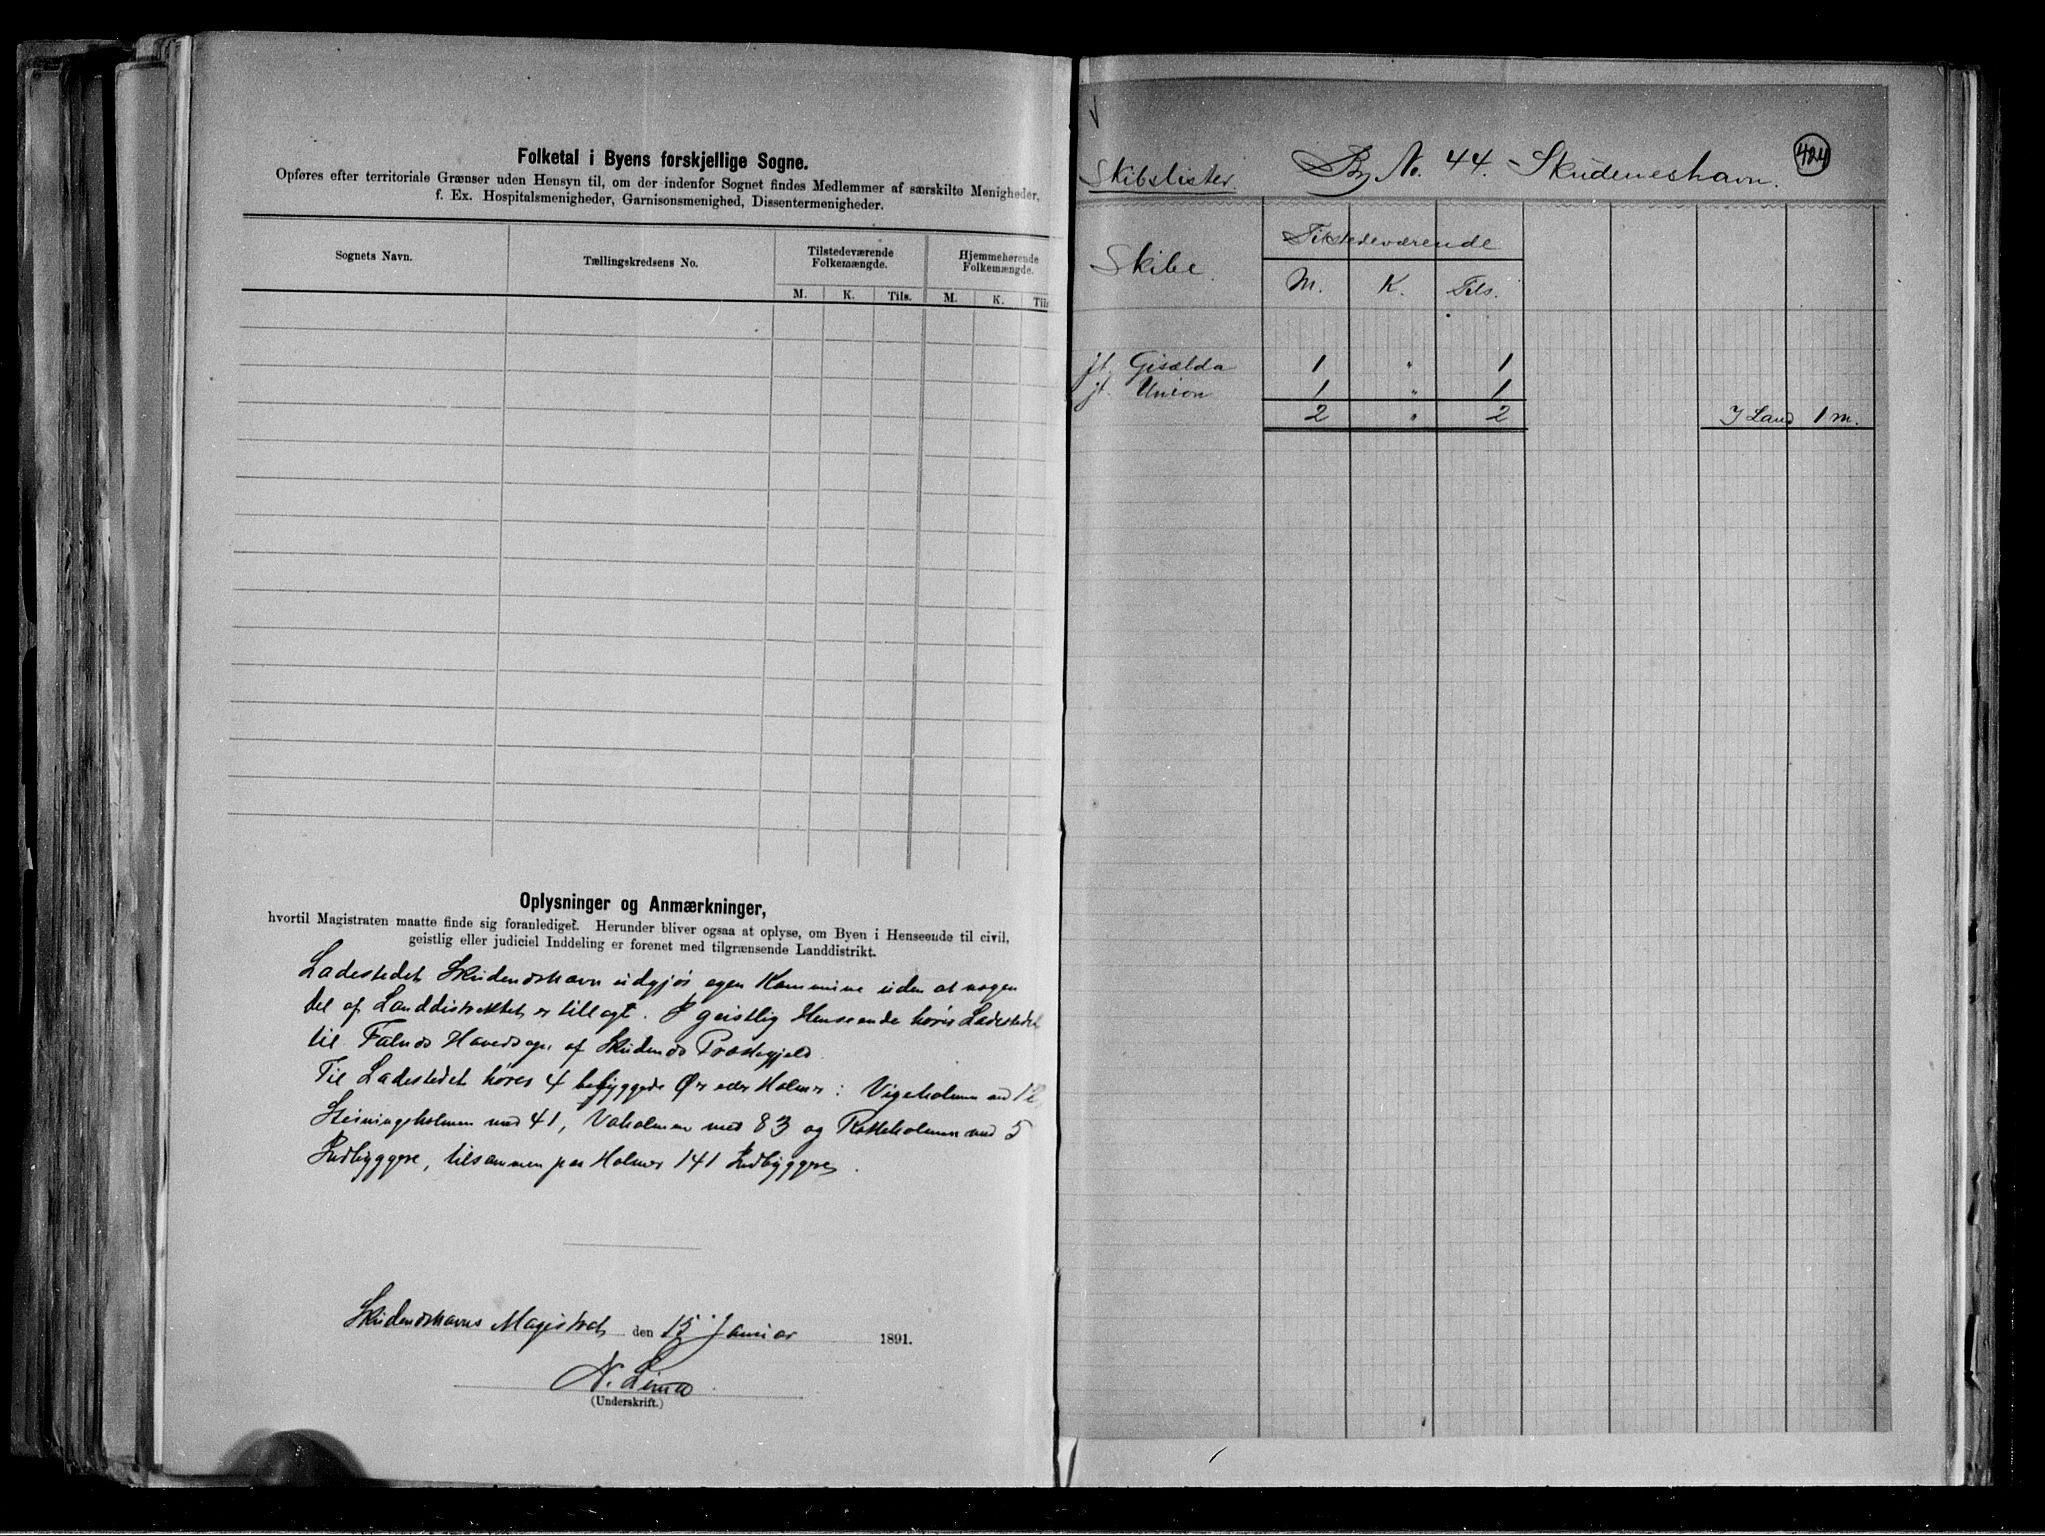 Folketal i Byens forskjellige Sogne.
Opføres efter territoriale Grænser uden Hensyn til, om der indenfor Sognet findes Medlemmer af særskilte Menigheder,
f. Ex. Hospitalsmenigheder, Garnisonsmenighed, Dissentermenigheder.
Sognets Navn. Tællingskredsens No. Tilstedeværende Folkemængde. Hjemmehørende Folkemængde.
M. K. Tils. M. K. Tils
Oplysninger og Anmærkninger,
hvortil Magistraten maatte finde sig foranlediget. Herunder bliver ogsaa at oplyse, om Byen i Henseende til civil,
geistlig eller judiciel Inddeling er forenet med tilgrænsende Landdistrikt.
Ladestedet Skudeneshavn udgjør egen Kommune uden at nogen
del af Landdistriktet er tillagt. I geistlig Henseende hører Ladestedet
til Falnes Hovedsogn af Skudenes Præstegjeld.
Til Ladestedet hører 4 bebyggede Øer eller Holmer: Vigeholmen med 12,
Steiningsholmen med 41, Vaholmen med 83 og med 5
Indbyggere, tilsammen paa Holmer 141 Indbyggere.
Skudeneshavns Magistrat den 15 Januar 1891.
N.
(Underskrift.)
424
Skibslister. By No. 44. Skudeneshavn.
Skibe. Tilstedeværende
M. K. Tils.
jt. Giselda 1 " 1
jt. Union 1 " 1
2 " 2 I Land 1 m.